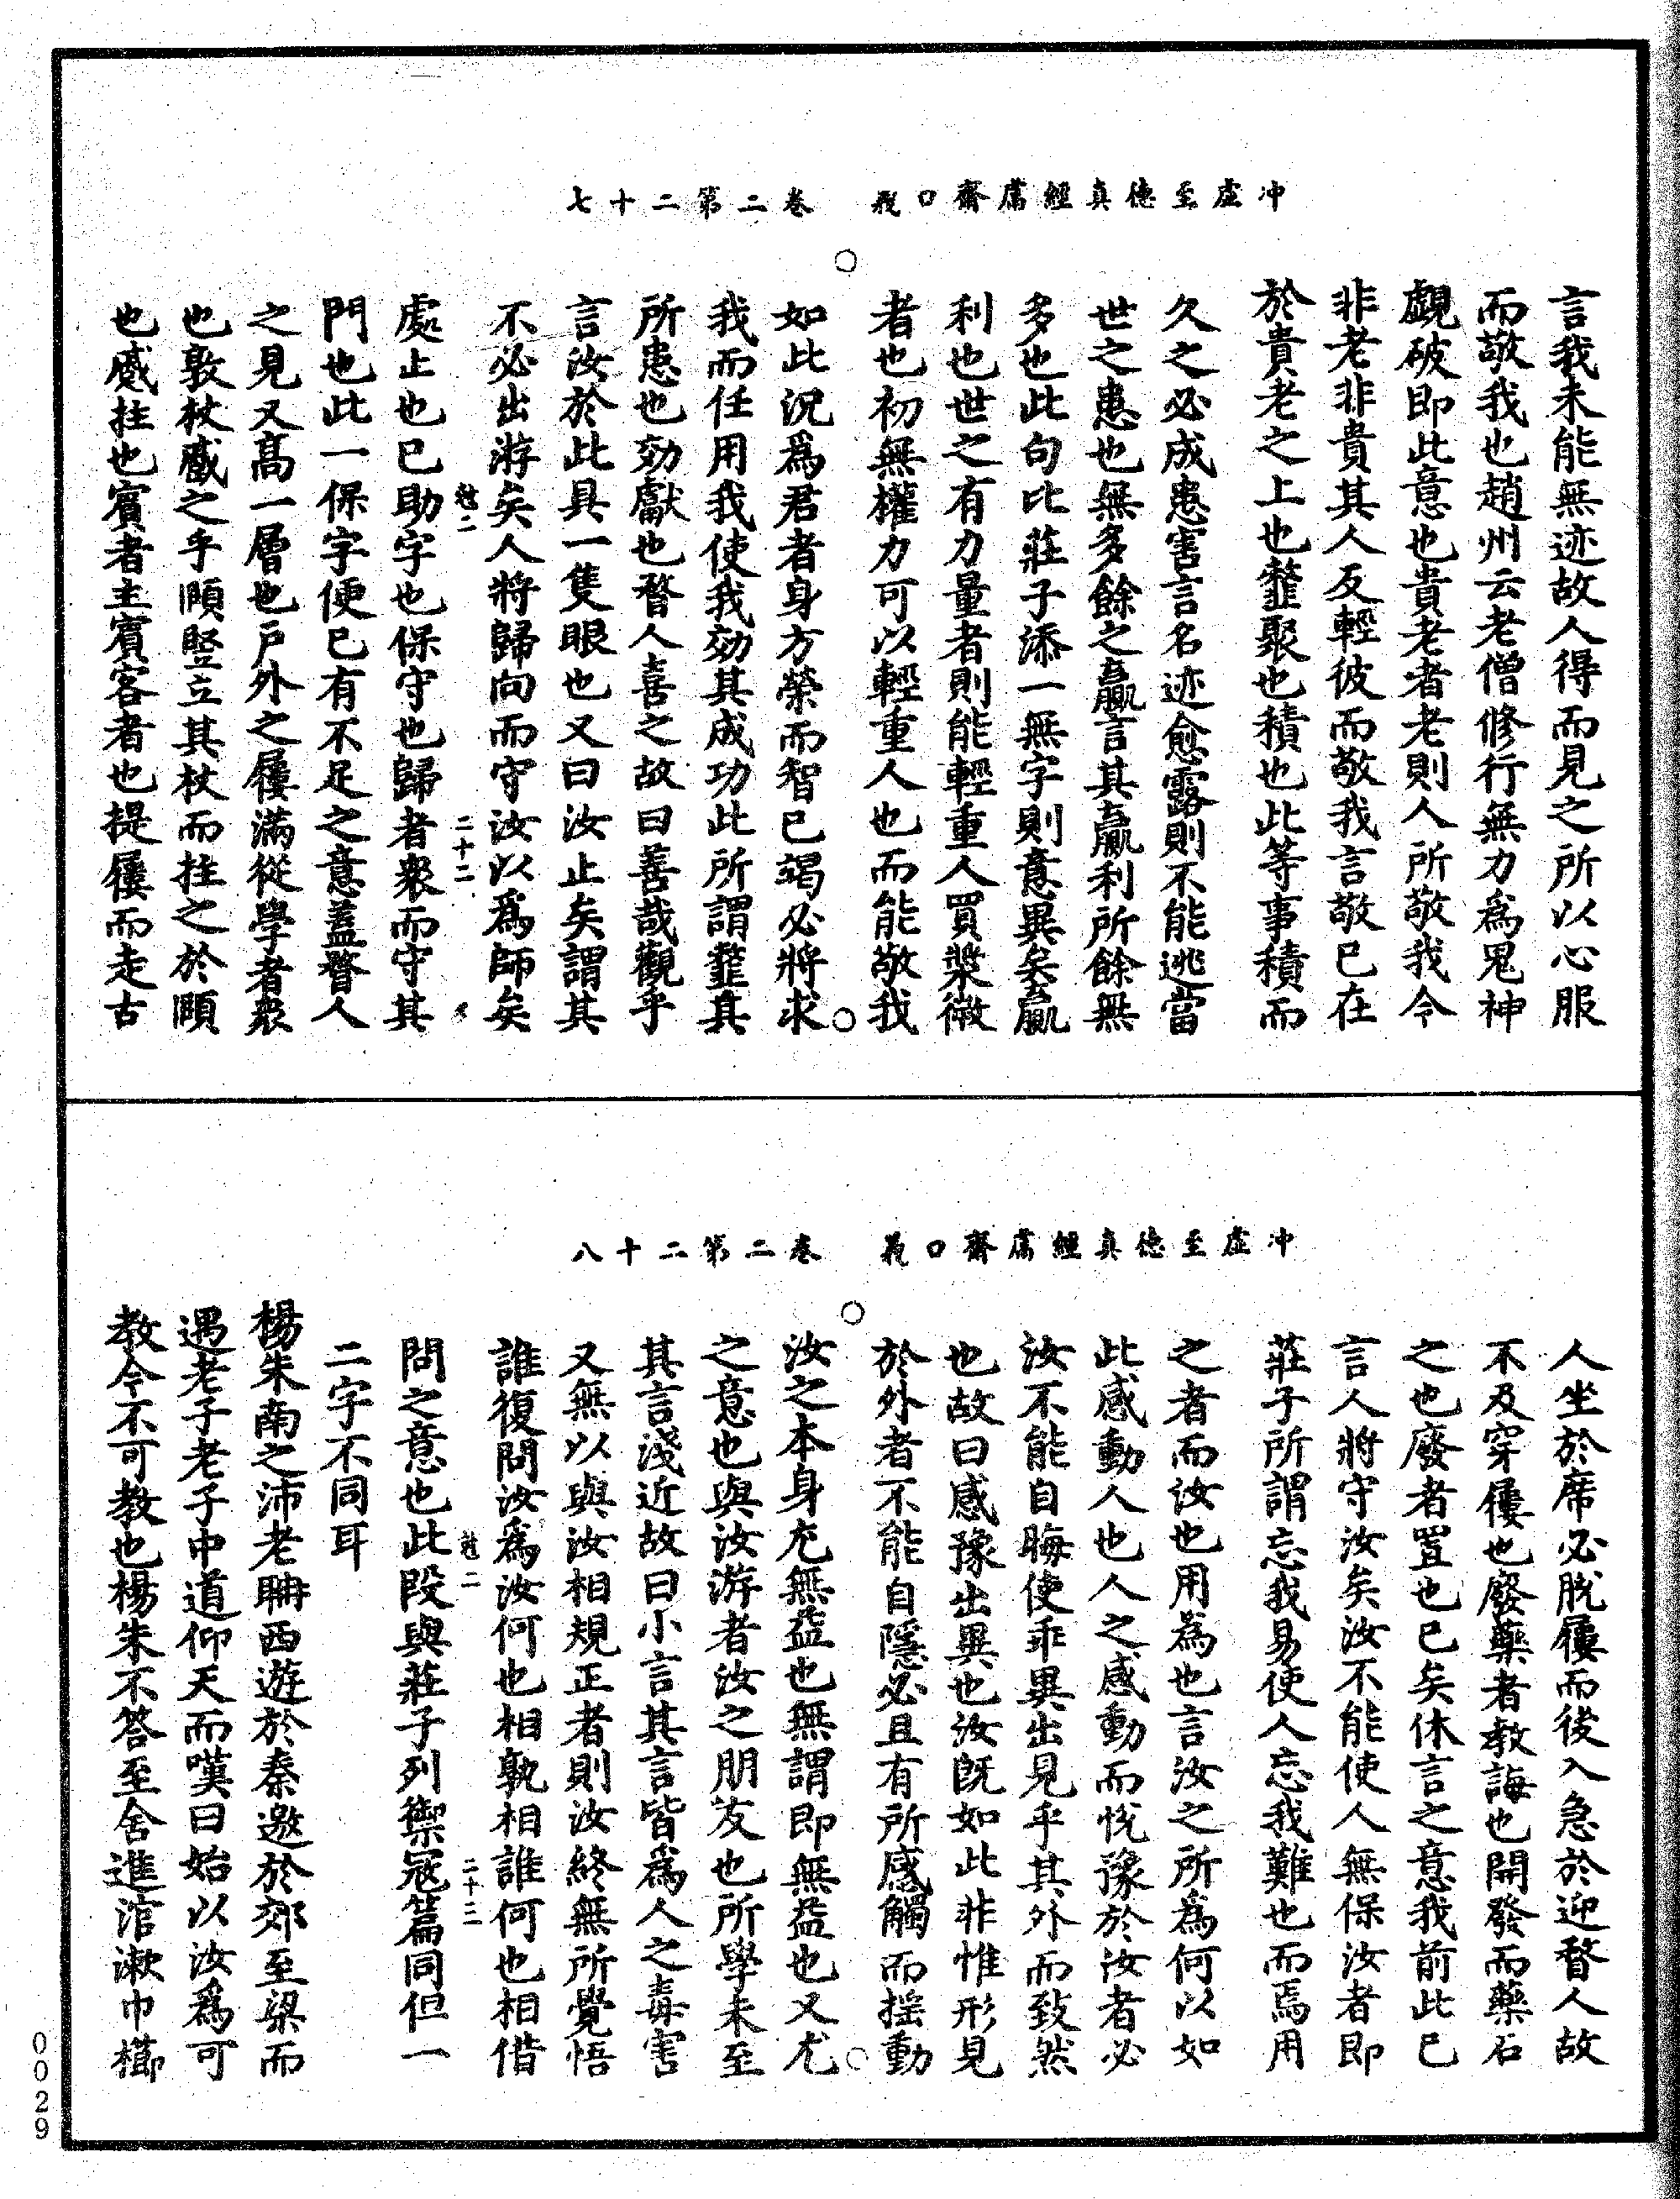 冲虛至德真經鬳齋口義　卷二第二十七
言我未能無迹故人得而見之所以心服
而敬我也趙州云老僧修行無力為鬼神
覷破即此意也貴老者老則人所敬我今
非老非貴其人反輕彼而敬我言敬已在
於貴老之上也䪠聚也積也此等事積而
久之必成患害言名迹愈露則不能逃當
世之患也無多餘之贏言其贏利所餘無
多也此句比莊子添一無字則意異矣贏
利也世之有力量者則能輕重人買漿微
者也初無權力可以輕重人也而能敬我
如此況爲君者身方榮而智已竭必將求
我而任用我使我効其成功此所謂䪠其
所患也効獻也瞀人喜之故曰善哉觀乎
言汝於此具一隻眼也又曰汝止矣謂其
不必出游矣人將歸向而守汝以爲師矣
尅二　二十二
處止也已助字也保守也歸者衆而守其
門也此一保字便已有不足之意蓋瞀人
之見又高一層也戶外之屨滿從學者衆
也敦杖蹙之乎頤竪立其杖而拄之於頤
也蹙拄也賓者主賓客者也提屨而走古
冲虛至德真經鬳齋口義　卷二第二十八
人坐於席必脫屨而後入急於迎瞀人故
不及穿屨也廢藥者教誨也開發而藥石
之也廢者置也已矣休言之意我前此已
言人將守汝矣汝不能使人無保汝者即
莊子所謂忘我易使人忘我難也而焉用
之者而汝也用為也言汝之所爲何以如
此感動人也人之感動而悅豫於汝者必
汝不能自晦使乖異出見乎其外而致然
也故曰感豫出異也汝既如此非惟形見
於外者不能自隱必且有所感觸而搖動
汝之本身尤無益也無謂即無益也又尤
之意也與汝游者汝之朋友也所學未至
其言淺近故曰小言其言皆爲人之毒害
又無以與汝相規正者則汝終無所覺悟
誰復問汝爲汝何也相孰相誰何也相偕
尅二　二十三
問之意也此段與莊子列禦寇篇同但一
二字不同耳
楊朱南之沛老聃西遊於秦邀於郊至梁而
遇老子老子中道仰天而嘆曰始以汝爲可
教今不可教也楊朱不答至舍進涫漱巾櫛
0029